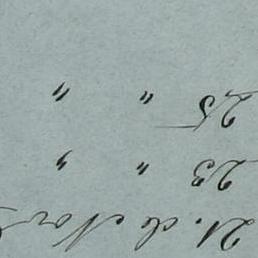 21. de Nov
23 " "
25 " "